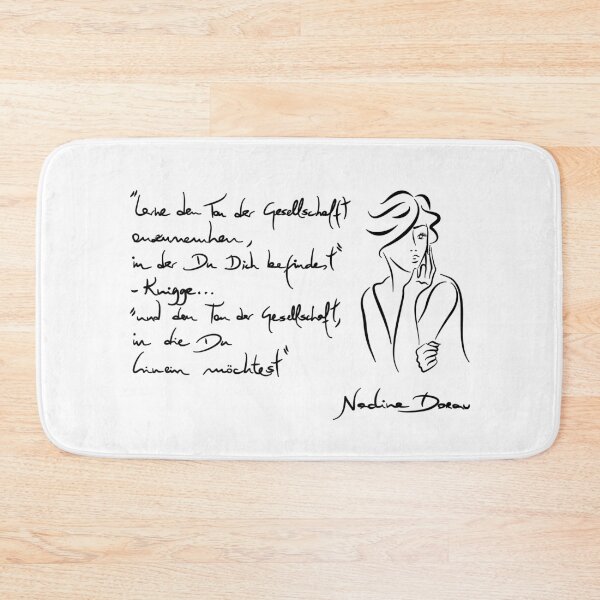 "Lerne den Ton der Gesellschafft
anzunemhen,
in der Du Dich befindest"
- Knigge...
"und den Ton der Gesellschaft,
in die Du
hinein möchtest"
Nadine Dorau